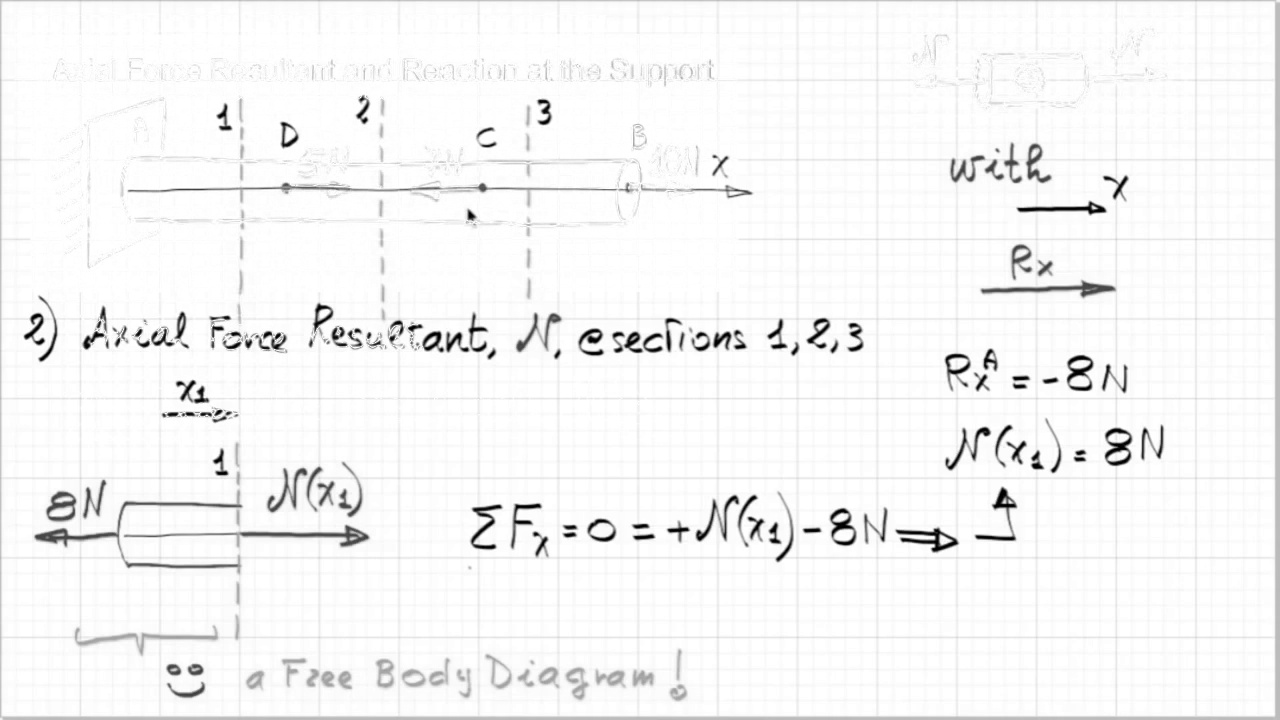 Axial Force Resultant and Reaction at the Support
N N
1 2 3
A D C B
5N 7N 10N x
with x
Rx
2) Axial Force Resultant, N, @ sections 1, 2, 3
Rx^A = -8N
x1
N(x1) = 8N
1
8N N(x1)
ΣFx = 0 = +N(x1) - 8N ⟹
a Free Body Diagram!